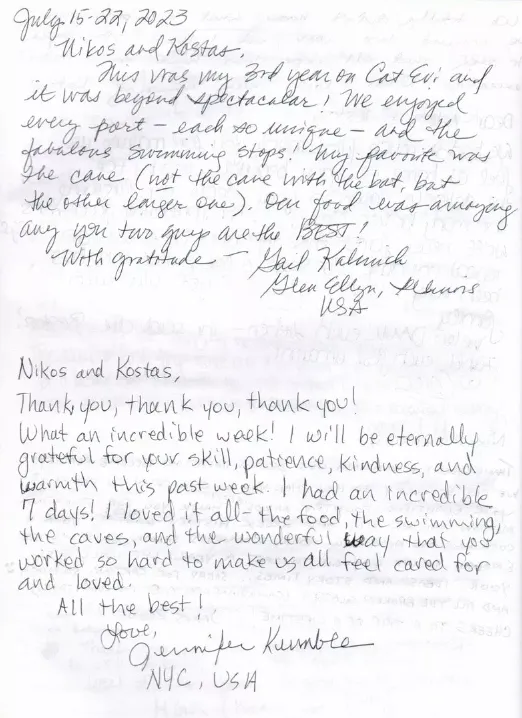 July 15-22, 2023
Nikos and Kostas,
This was my 3rd year on Cat Evi and
it was beyond spectacular! We enjoyed
every port - each so unique - and the
fabulous swimming stops! My favorite was
the cave (not the cave with the bat, but
the other larger one). Our food was amazing
and you two guys are the BEST!
With gratitude - Gail
Glen Ellyn, Illinois
USA
Nikos and Kostas,
Thank you, thank you, thank you!
What an incredible week! I will be eternally
grateful for your skill, patience, kindness, and
warmth this past week. I had an incredible
7 days! I loved it all - the food, the swimming,
the caves, and the wonderful way that you
worked so hard to make us all feel cared for
and loved.
All the best!
Love,
Jennifer Kumble
NYC, USA